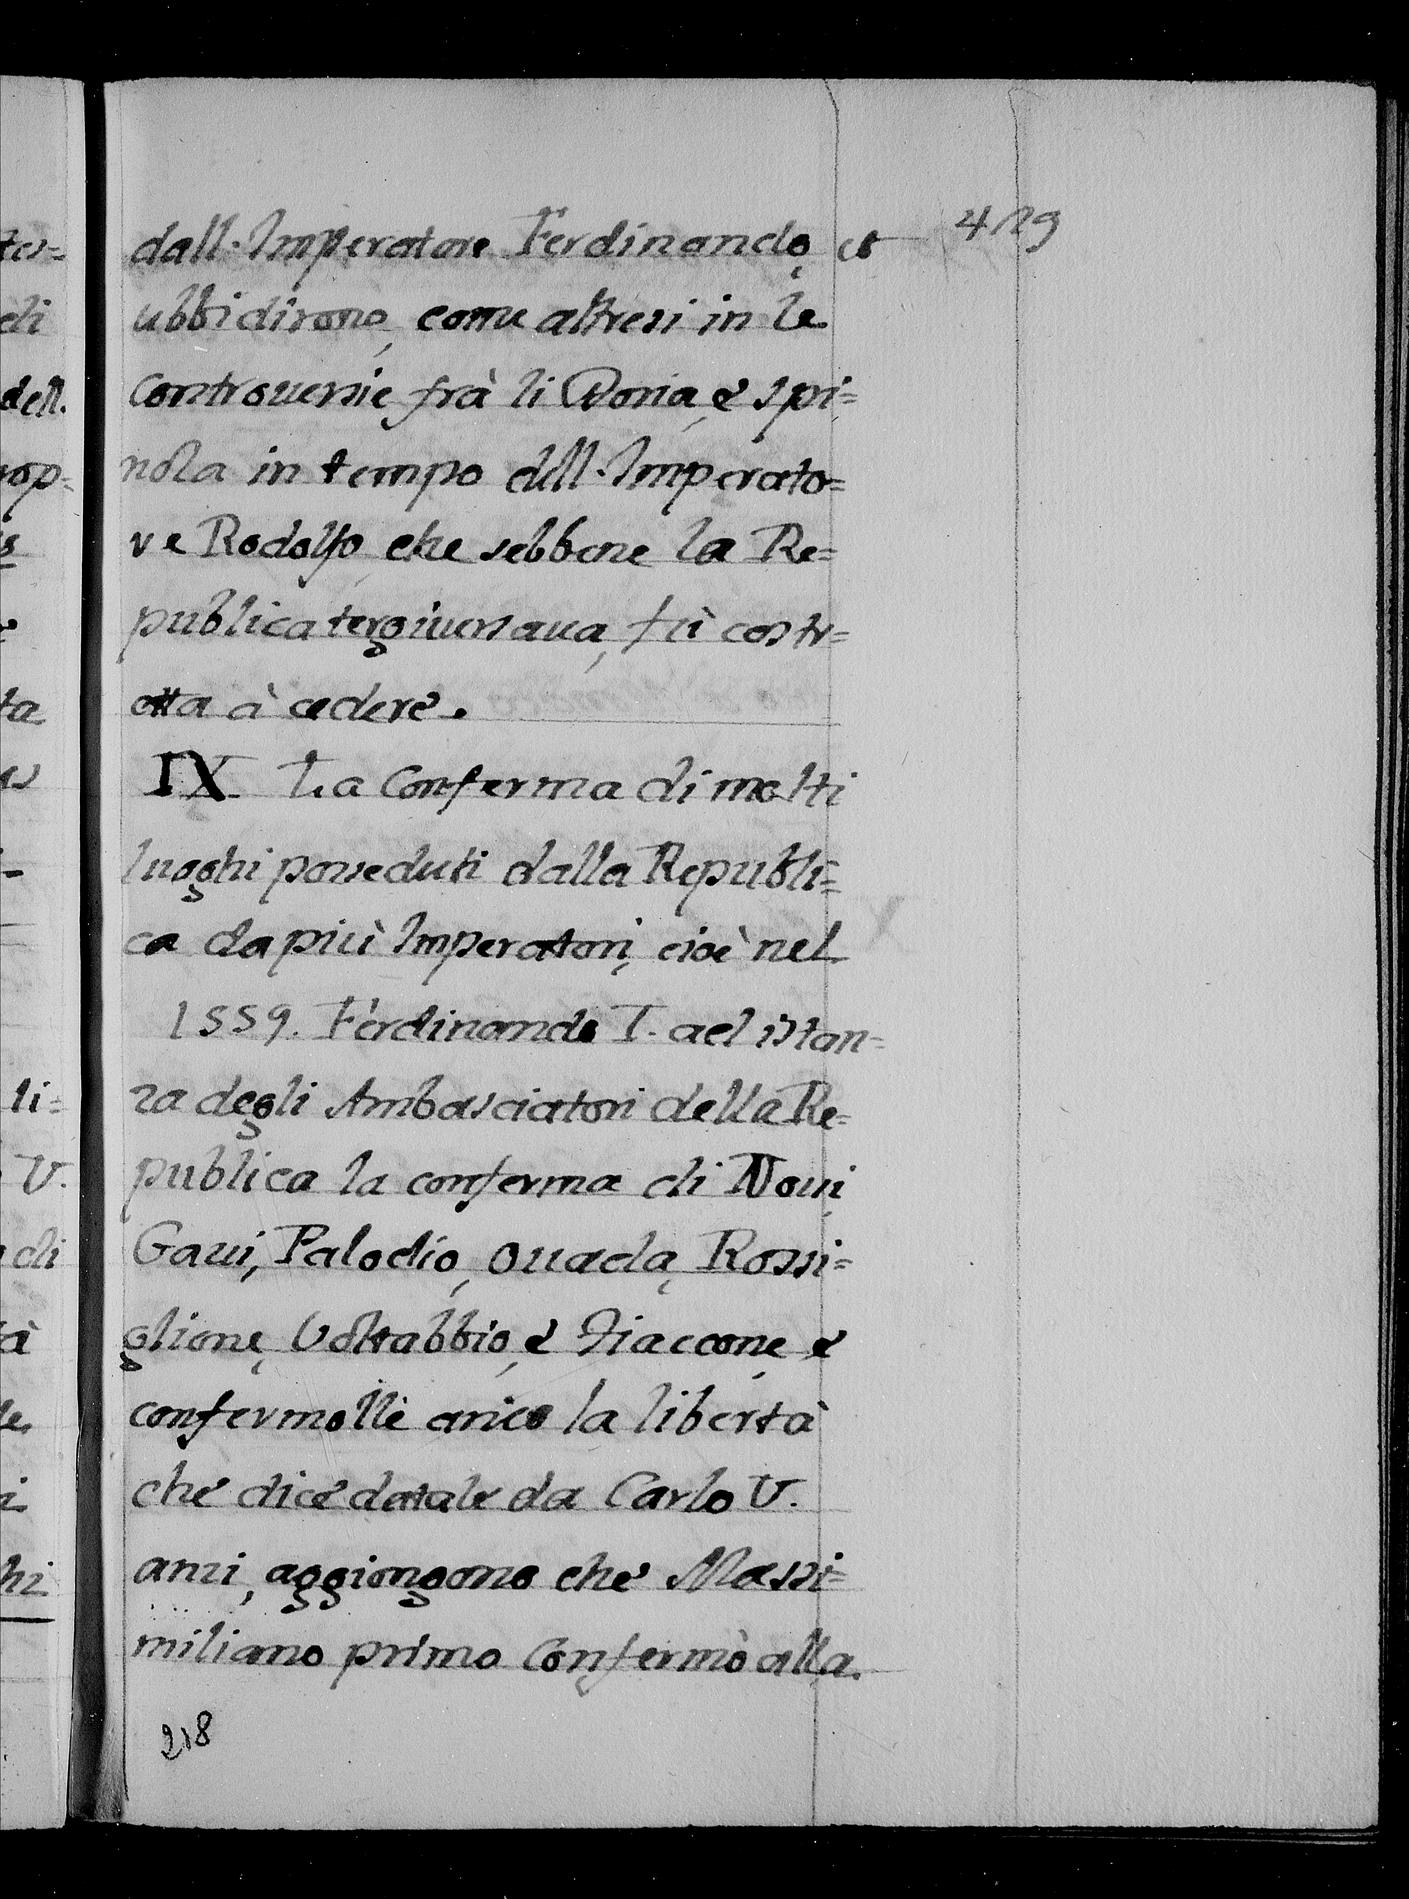 429
dall. Imperatore Ferdinando, et
ubbidirono, come altresi in le
controuersie frà li Doria, e spi=
nola in tempo dell. Imperato=
re Rodolfo, che sebbene la Re=
publica tergiuersaua, fù costr=
etta à cedere.
IX. La Conferma di molti
luoghi posseduti dalla Republi=
ca da più Imperatori, cioè nel
1559. Ferdinando I. ad istan=
za degli Ambasciatori della Re=
publica la conferma di Noui,
Gaui, Palodio, Ouada, Rossi=
glione, Voltabbio, e Fiaccone, e
confermolle anico la libertà
che dice datale da Carlo V.
anzi, aggiongono che Massi=
miliano primo Confermò alla
218